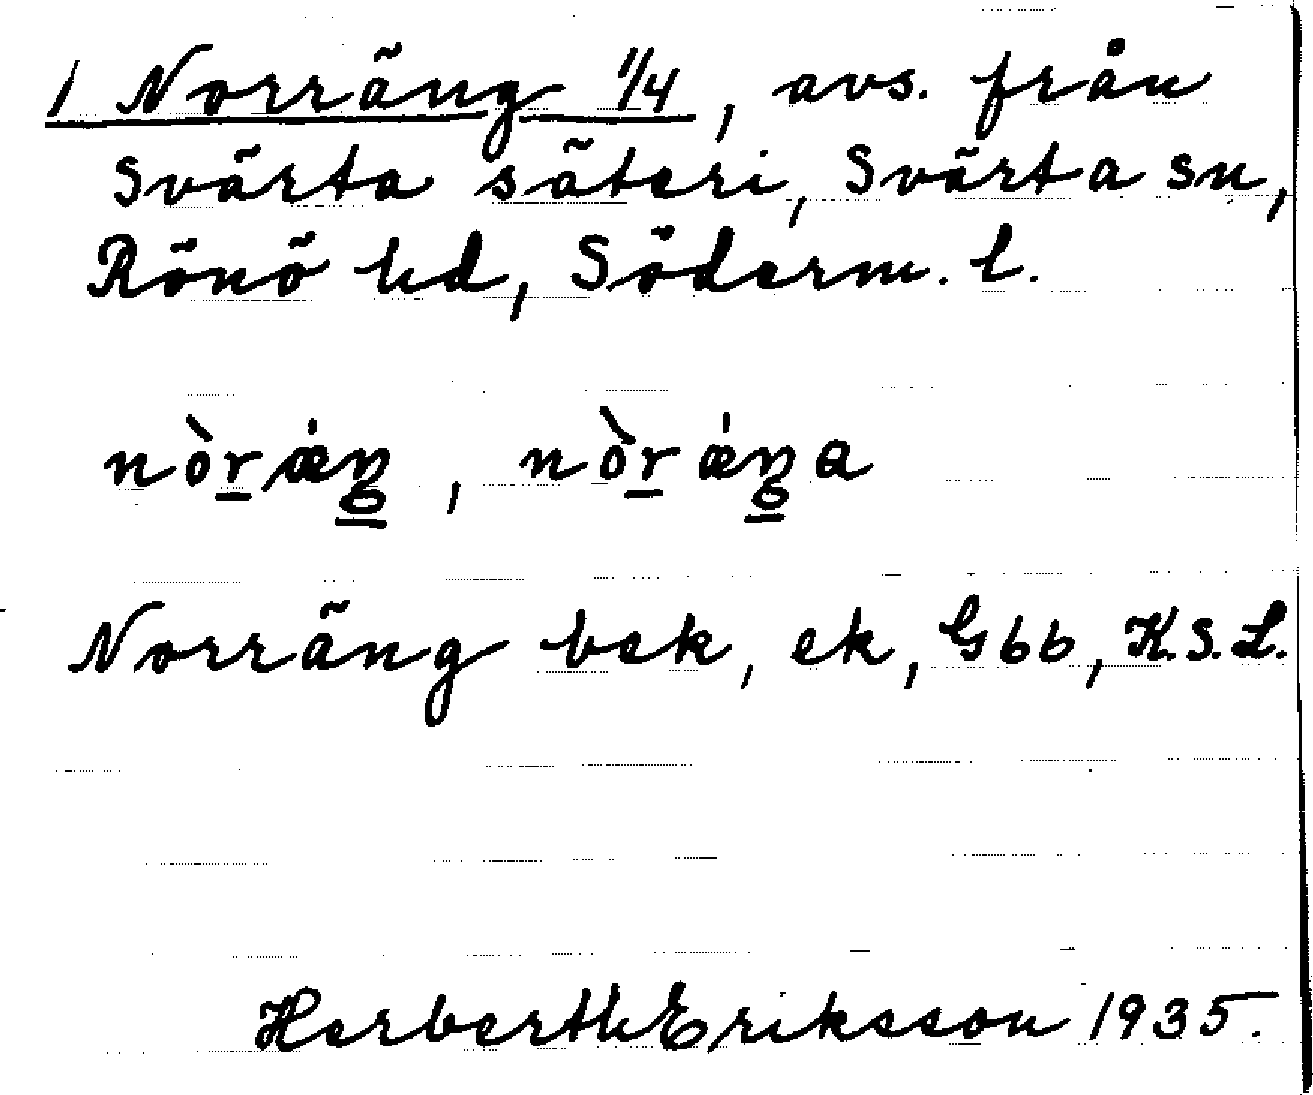 1 Norräng 1/4, avs. från
Svärta säteri, Svärta sn,
Rönö hd, Söderm. l.
nòræ̀ŋ, nòræ̀ŋa
Norräng bek, ek, Gbb, K.S.L.
Herberth Eriksson 1935.